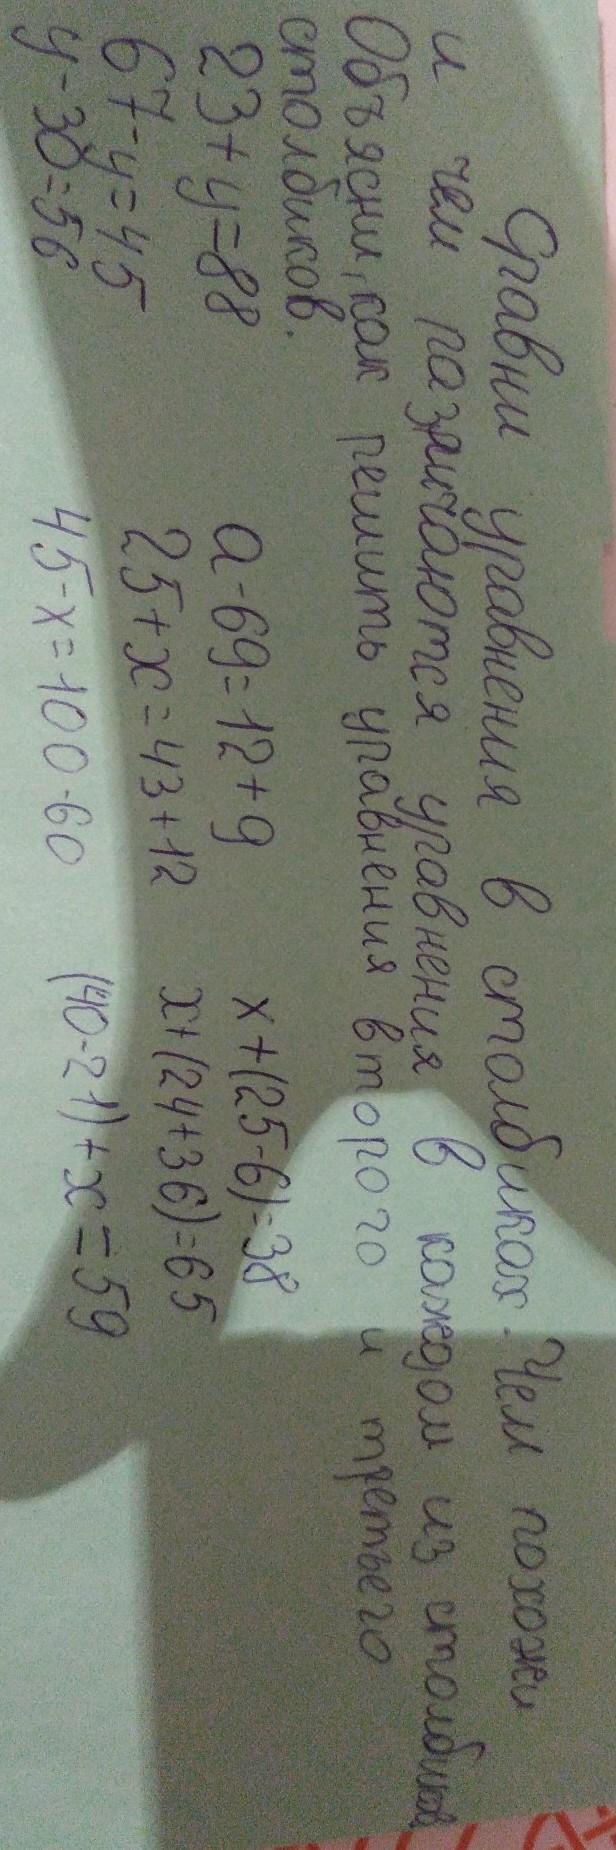 Сравни уравнения в столбиках. Чем похожи
и чем различаются уравнения в каждом из столбиков
Объясни, как решить уравнения второго и третьего
столбиков.
23+y=88 a-69=12+9 x+(25-6)=38
67-y=45 25+x=43+12 x+(24+36)=65
y-30=56 45-x=100-60 (40-21)+x=59